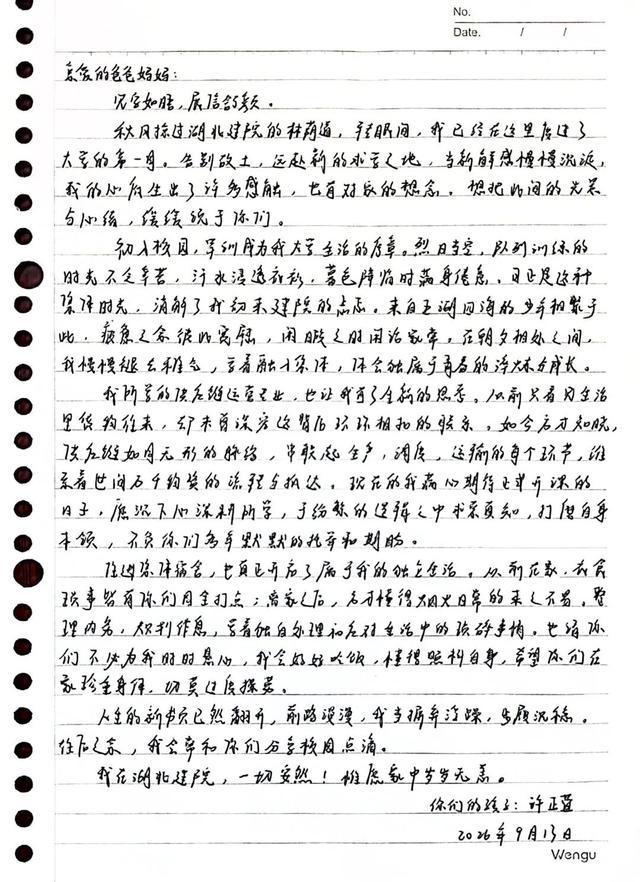 No.
Date. / /
亲爱的爸爸妈妈:
见字如晤,展信舒颜。
秋风掠过湖北建院的林荫道,转眼间,我已经在这里度过了
大学的第一月。告别故土,远赴新的求学之地,当新鲜感慢慢沉淀,
我的心底生出了许多感触,也有对家的想念。想把此间的光景
与心绪,缓缓说于你们。
初入校园,军训成为我大学生活的序章。烈日当空,队列训练的
时光不乏辛苦,汗水浸透衣衫,暮色降临时满身倦意。可正是这种
集体时光,消解了我初来建院的忐忑。来自五湖四海的少年相聚于
此,疲惫之余彼此宽慰,闲暇之时闲话家常。在朝夕相处之间,
我慢慢褪去稚气,学着融入集体,体会独属于青春的淬炼与成长。
我所学的供应链运营专业,也让我有了全新的思考。从前只看见生活
里货物往来,却未曾深究这背后环环相扣的联系。如今方才知晓,
供应链如同无形的脉络,串联起生产,调度,运输的每个环节,维
系着世间万千物资的流程与抵达。现在的我满心期待正式开课的
日子,愿沉下心深耕所学,于繁杂的道理之中求索真知,打磨自身
本领,不负你们多年默默的托举和期盼。
住进集体宿舍,也真正开启了属于我的独立生活。从前在家,衣食
琐事皆有你们周全打点;离家之后,方才懂得烟火日常的来之不易。整
理内务,规划作息,学着独自处理和应对生活中的琐碎事情。也请你
们不必为我时时悬心,我会好好吃饭,懂得照料自身,希望你们在
家珍重身体,切莫过度操劳。
人生的新书页已然翻开,前路漫漫,我当摒弃浮躁,步履沉稳。
往后之余,我会常和你们分享校园点滴。
我在湖北建院,一切安然!惟愿家中岁岁无恙。
你们的孩子:许正蓝
2026年9月13日
Wengu